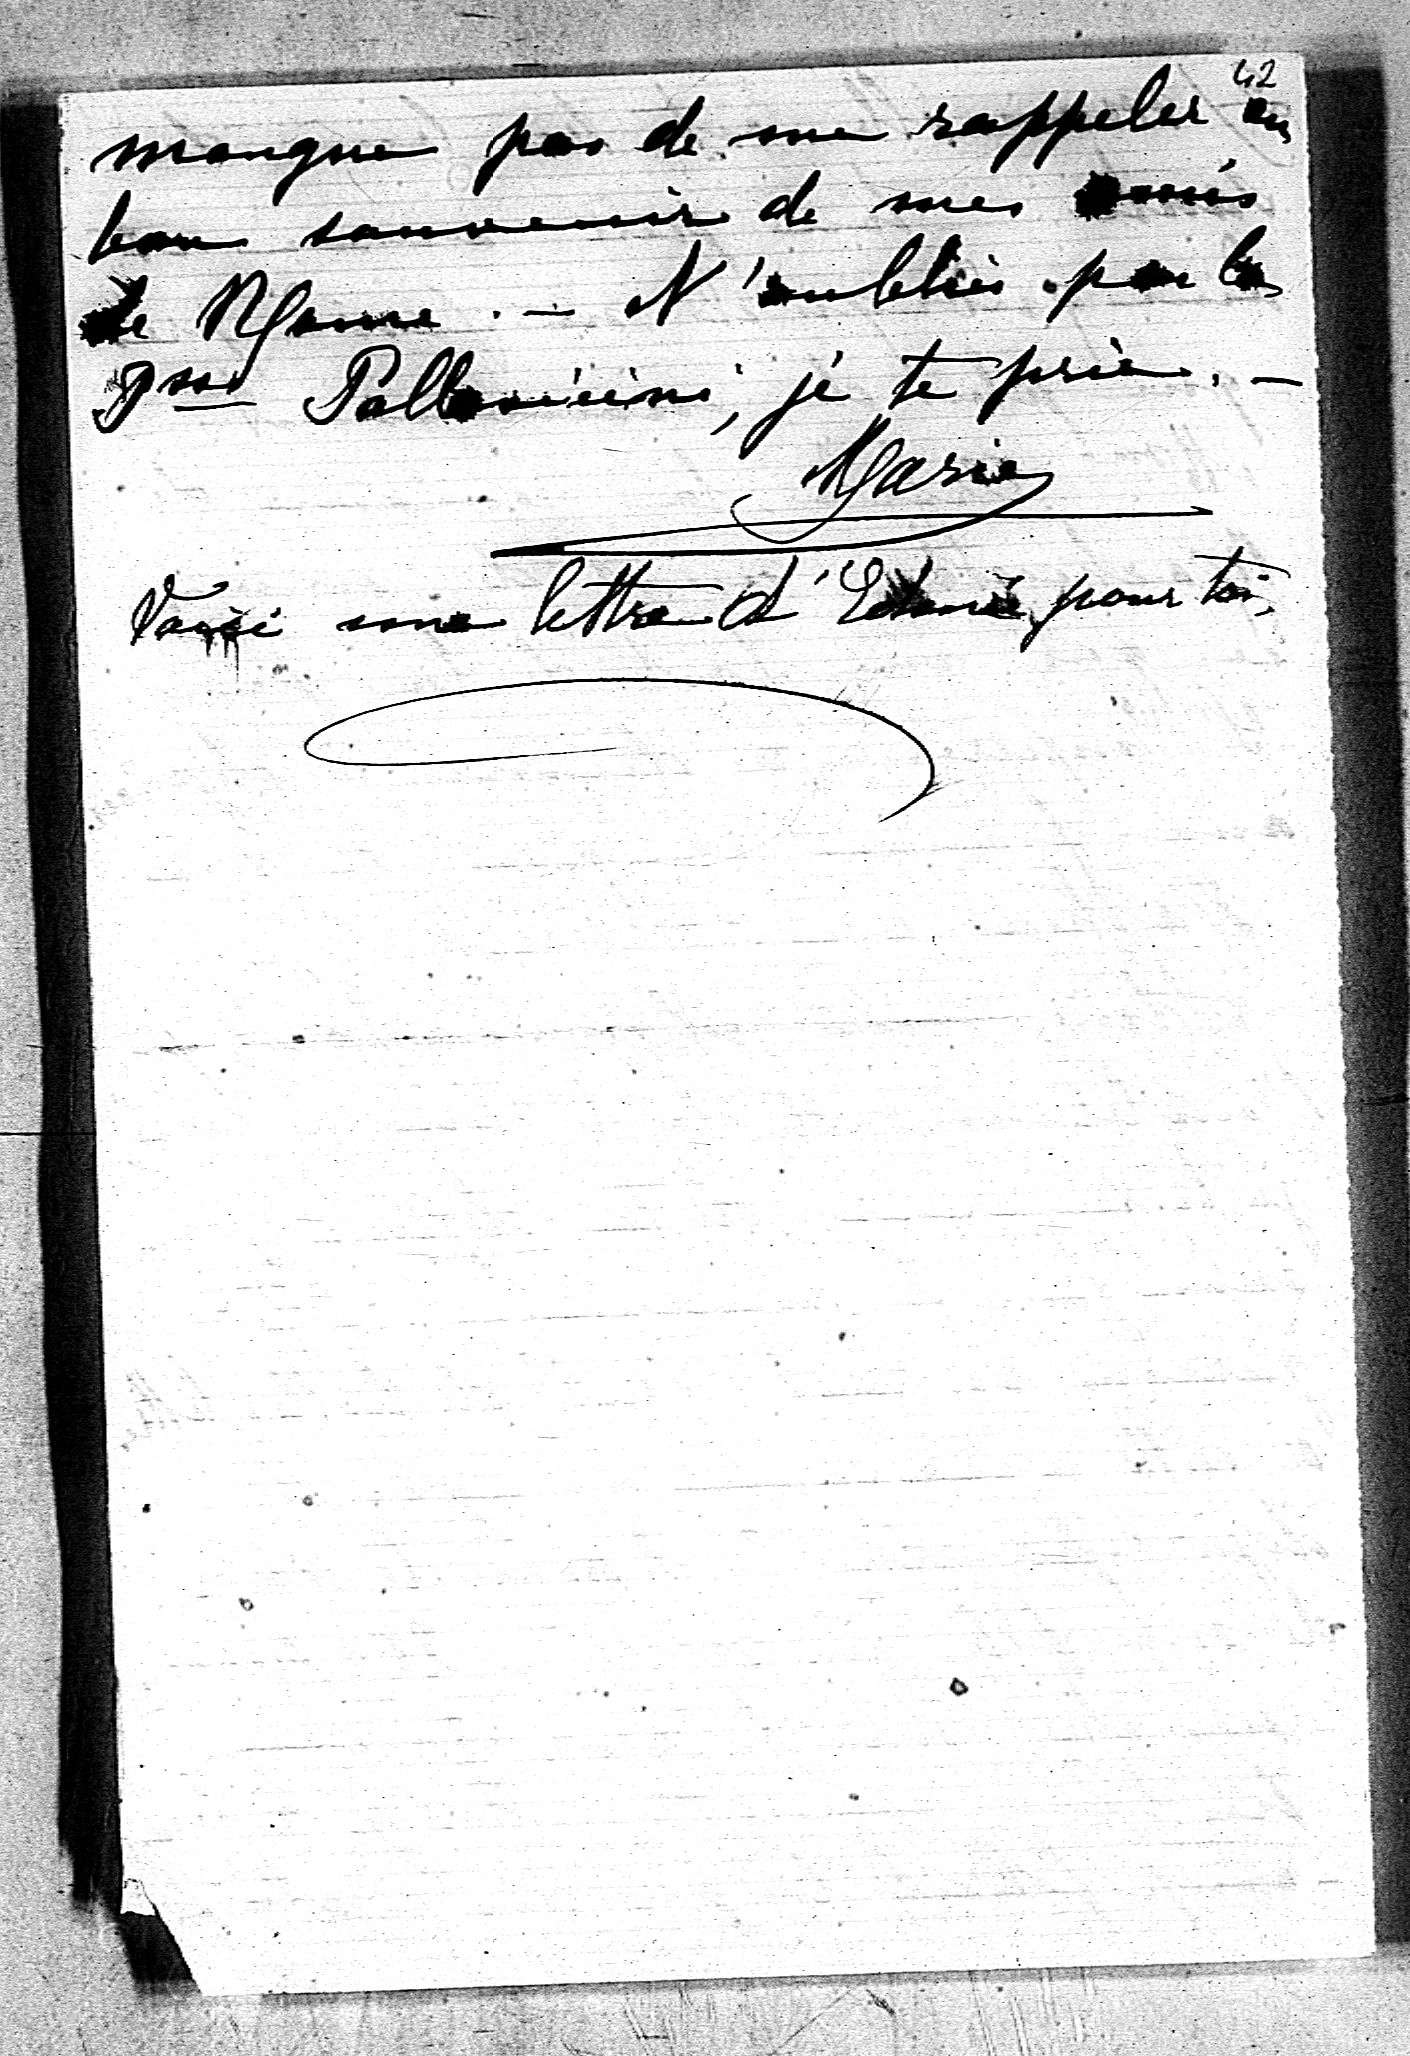 42
manque pas de me rappeler au
bon souvenir de mes amis
de Rome. — N'oublies pas la
Psse Pallavicini, je te prie. —
Marie
Voici une lettre d' pour toi.